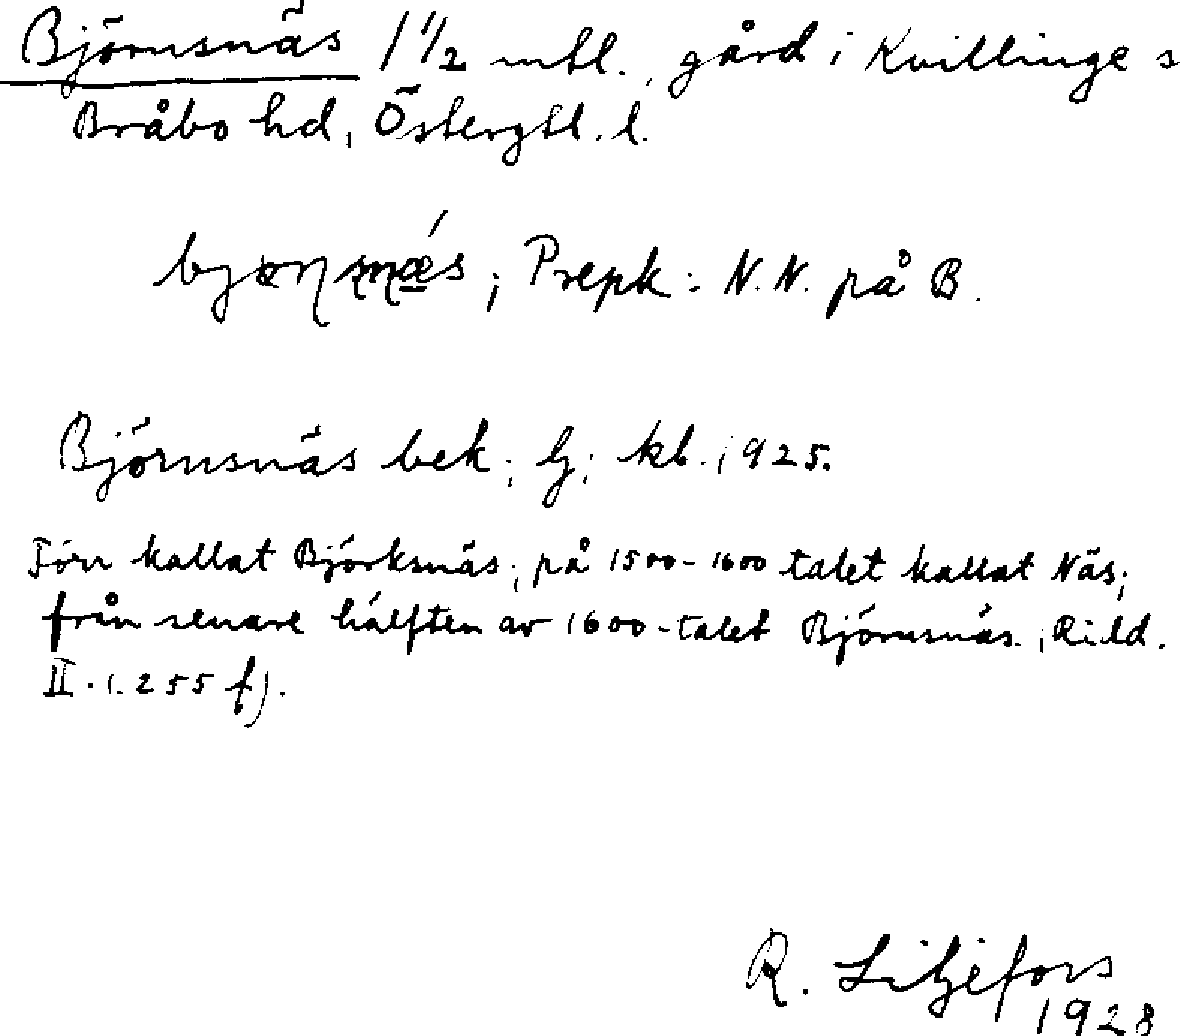 Björnsnäs 1 1/2 mtl., gård i Kvillinge s
Bråbo hd, Östergtl. l.
Prepk: N.N. på B.
Björnsnäs bek; lj; kb. 1925.
Förr kallat Björksnäs; på 1500-1600 talet kallat Näs;
från senare hälften av 1600-talet Björnsnäs. (Ridd.
II. s. 255 f).
R. Liljefors
1928